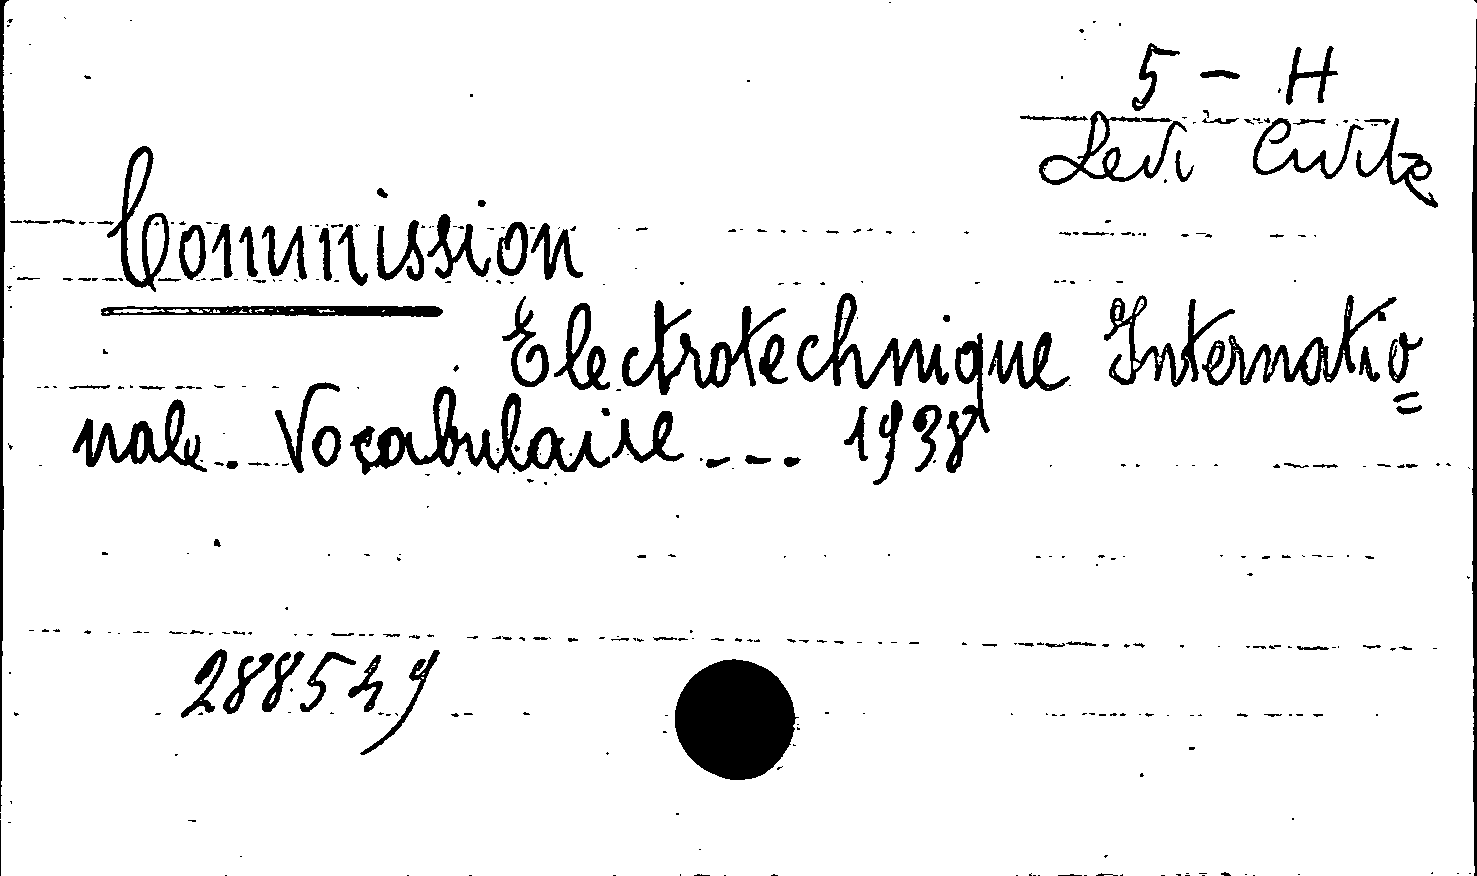 5 - H
Levi Civita
Commission
Electrotechnique Internatio=
nale. Vocabulaire --- 1938
288549